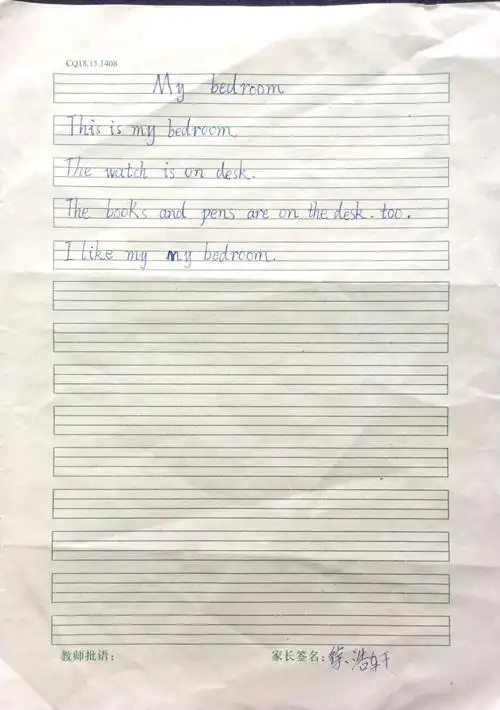 CQ18.15.1408
My bedroom
This is my bedroom.
The watch is on desk.
The books and pens are on the desk. too.
I like my my bedroom.
教师批语: 家长签名: 徐浩轩